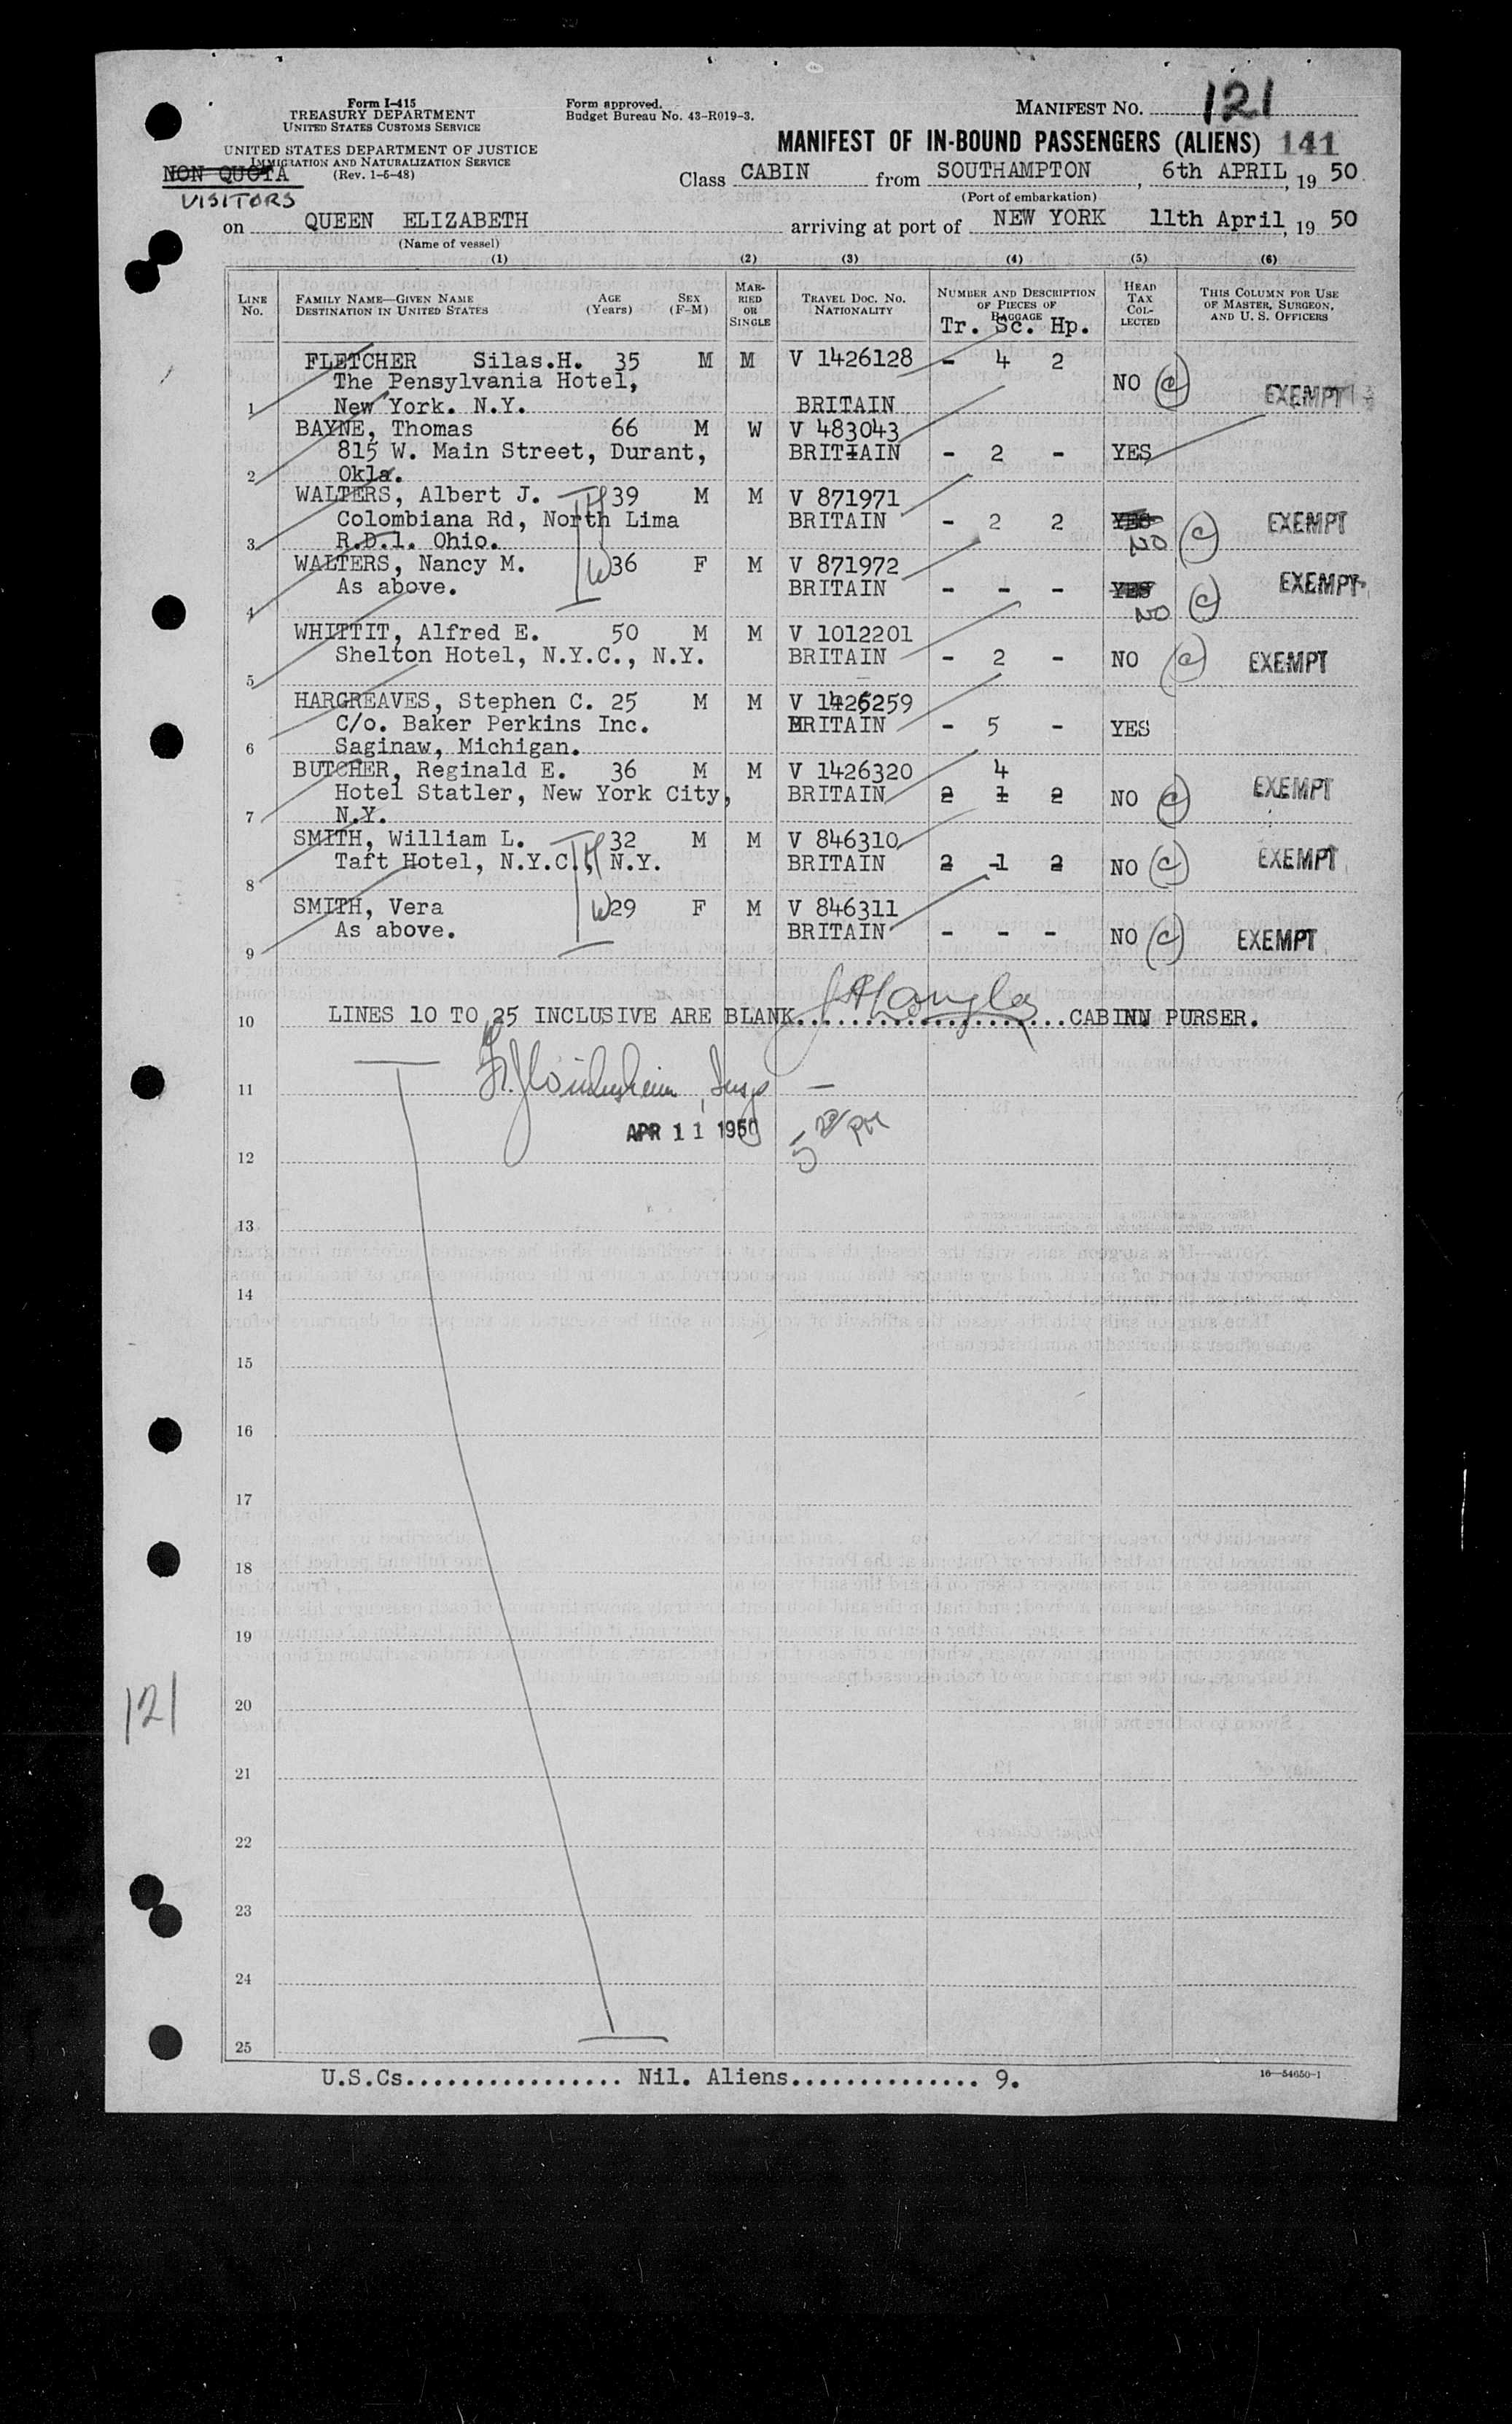 Form I-415
TREASURY DEPARTMENT
UNITED STATES CUSTOMS SERVICE
UNITED STATES DEPARTMENT OF JUSTICE
IMMIGRATION AND NATURALIZATION SERVICE
(Rev. 1-5-48)
NON QUOTA
VISITORS
Form approved.
Budget Bureau No. 43-R019-3.
MANIFEST NO. 121
MANIFEST OF IN-BOUND PASSENGERS (ALIENS) 141
Class CABIN from SOUTHAMPTON, 6th APRIL, 19 50
(Port of embarkation)
on QUEEN ELIZABETH arriving at port of NEW YORK 11th April, 19 50
(Name of vessel)
(1) (2) (3) (4) (5) (6)
LINE No. FAMILY NAME—GIVEN NAME DESTINATION IN UNITED STATES AGE (Years) SEX (F-M) MARRIED OR SINGLE TRAVEL DOC. NO. NATIONALITY NUMBER AND DESCRIPTION OF PIECES OF BAGGAGE HEAD TAX COLLECTED THIS COLUMN FOR USE OF MASTER, SURGEON, AND U. S. OFFICERS
Tr. Sc. Hp.
FLETCHER Silas.H. 35 M M V 1426128 - 4 2
The Pensylvania Hotel, NO (c) EXEMPT
1 New York. N.Y. BRITAIN
BAYNE, Thomas 66 M W V 483043
815 W. Main Street, Durant, BRITIAIN - 2 - YES
2 Okla.
WALTERS, Albert J. H 39 M M V 871971
Colombiana Rd, North Lima BRITAIN - 2 2 YES EXEMPT
3 R.D.1. Ohio. NO (c)
WALTERS, Nancy M. W 36 F M V 871972
As above. BRITAIN - - - YES EXEMPT
4 NO (c)
WHITTIT, Alfred E. 50 M M V 1012201
Shelton Hotel, N.Y.C., N.Y. BRITAIN - 2 - NO (c) EXEMPT
5
HARGREAVES, Stephen C. 25 M M V 1426259
C/o. Baker Perkins Inc. BRITAIN - 5 - YES
6 Saginaw, Michigan.
BUTCHER, Reginald E. 36 M M V 1426320 4
Hotel Statler, New York City, BRITAIN 2 1 2 NO (c) EXEMPT
7 N.Y.
SMITH, William L. H 32 M M V 846310
Taft Hotel, N.Y.C., N.Y. BRITAIN 2 1 2 NO (c) EXEMPT
8
SMITH, Vera W 29 F M V 846311
As above. BRITAIN - - - NO (c) EXEMPT
9
10 LINES 10 TO 25 INCLUSIVE ARE BLANK.....................CABIN PURSER.
11
APR 11 1950
12
13
14
15
16
17
18
19
121
20
21
22
23
24
25
U.S.Cs................. Nil. Aliens............... 9.
16—54650-1